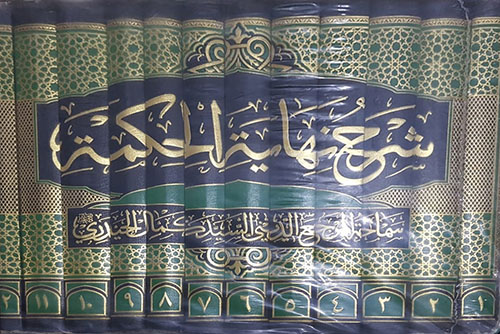 شرح نهاية الحكمة
سماحة المرجع الديني السيد كمال الحيدري
١ ٢ ٣ ٤ ٥ ٦ ٧ ٨ ٩ ١٠ ١١